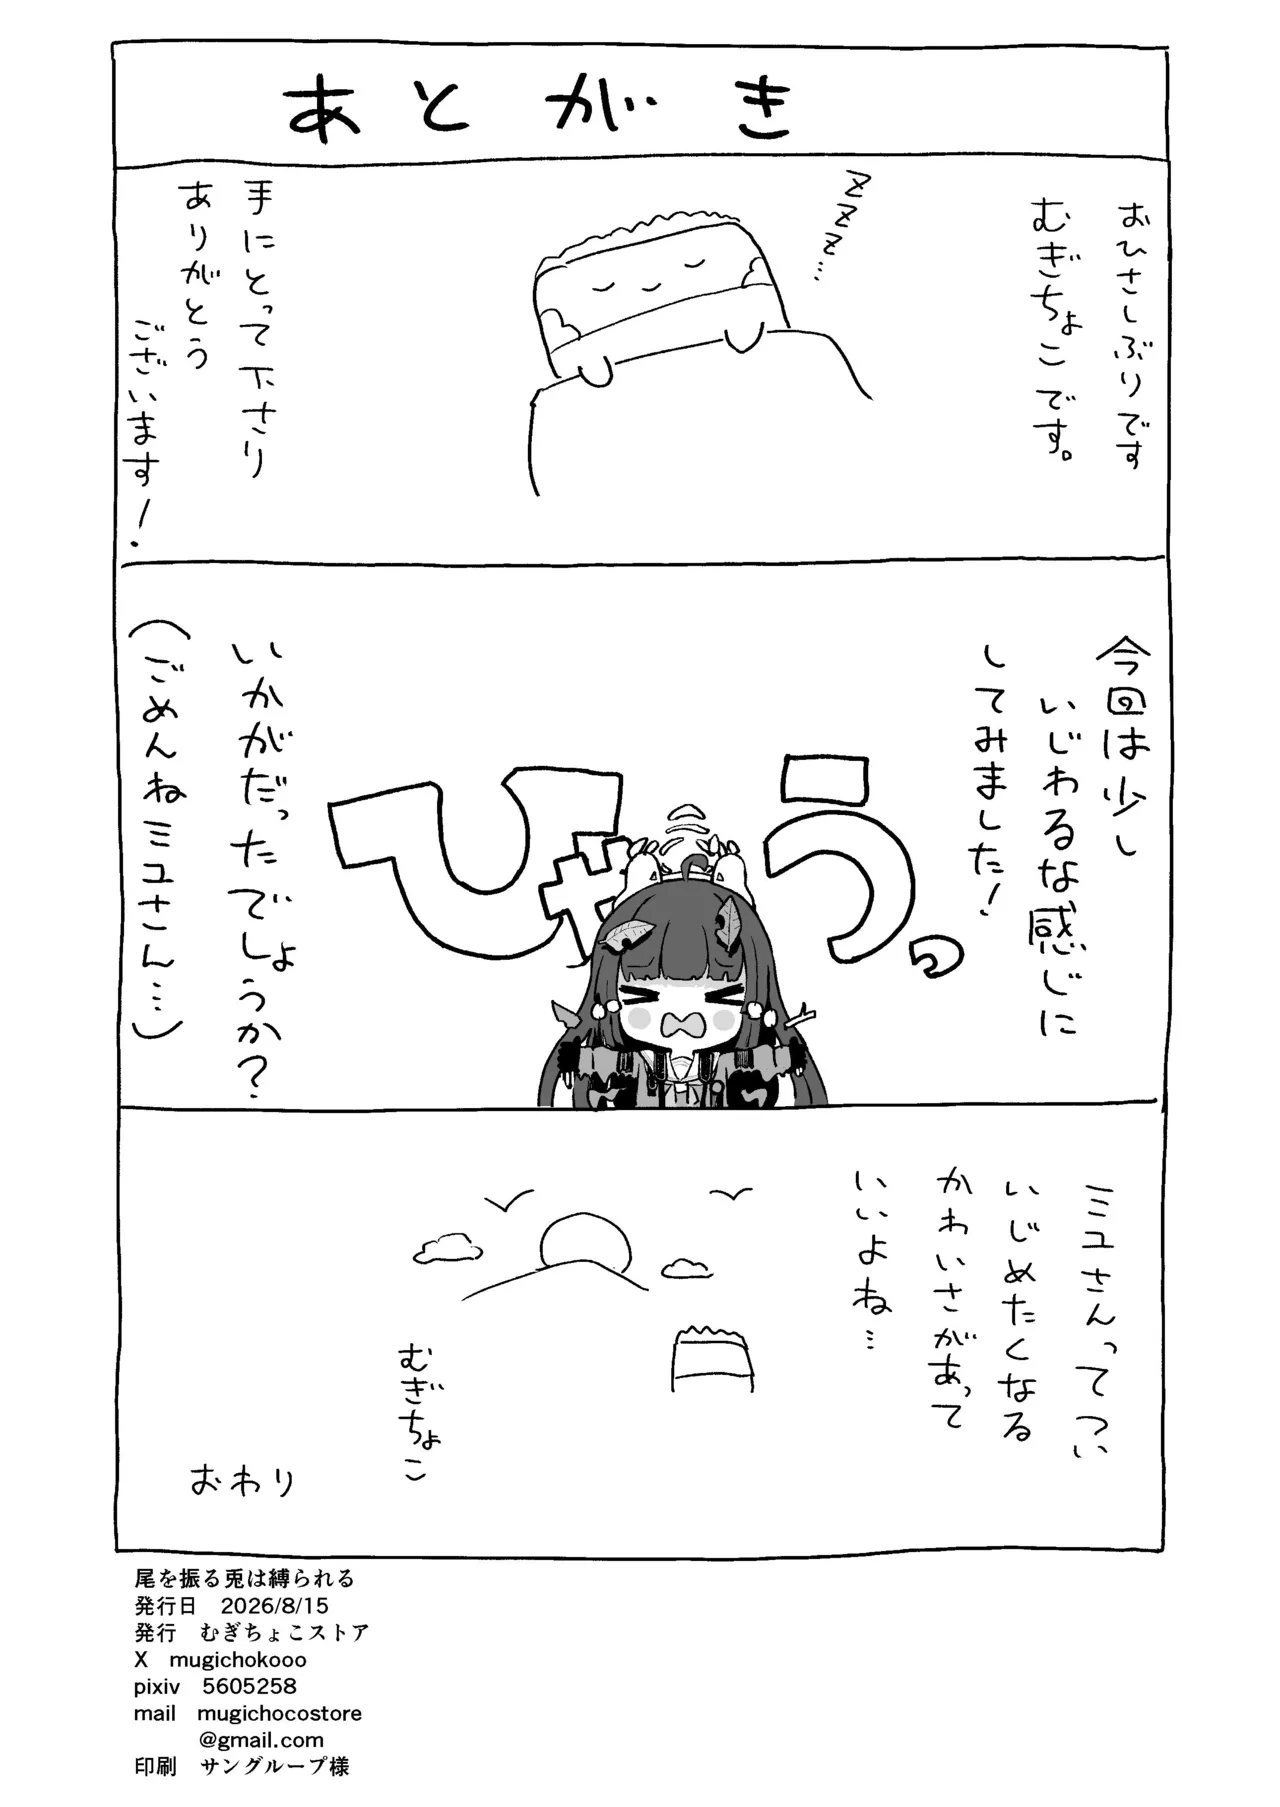 あとがき
おひさしぶりです
むぎちょこです。
ZZZ…
手にとって下さり
ありがとう
ございます！
今回は少し
いじわるな感じに
してみました！
ひゃうっ
いかがだったでしょうか？
（ごめんねミユさん…）
ミユさんってつい
いじめたくなる
かわいさがあって
いいよね…
むぎちょこ
おわり
尾を振る兎は縛られる
発行日　2026/8/15
発行　むぎちょこストア
X　mugichokooo
pixiv　5605258
mail　mugichocostore
@gmail.com
印刷　サングループ様